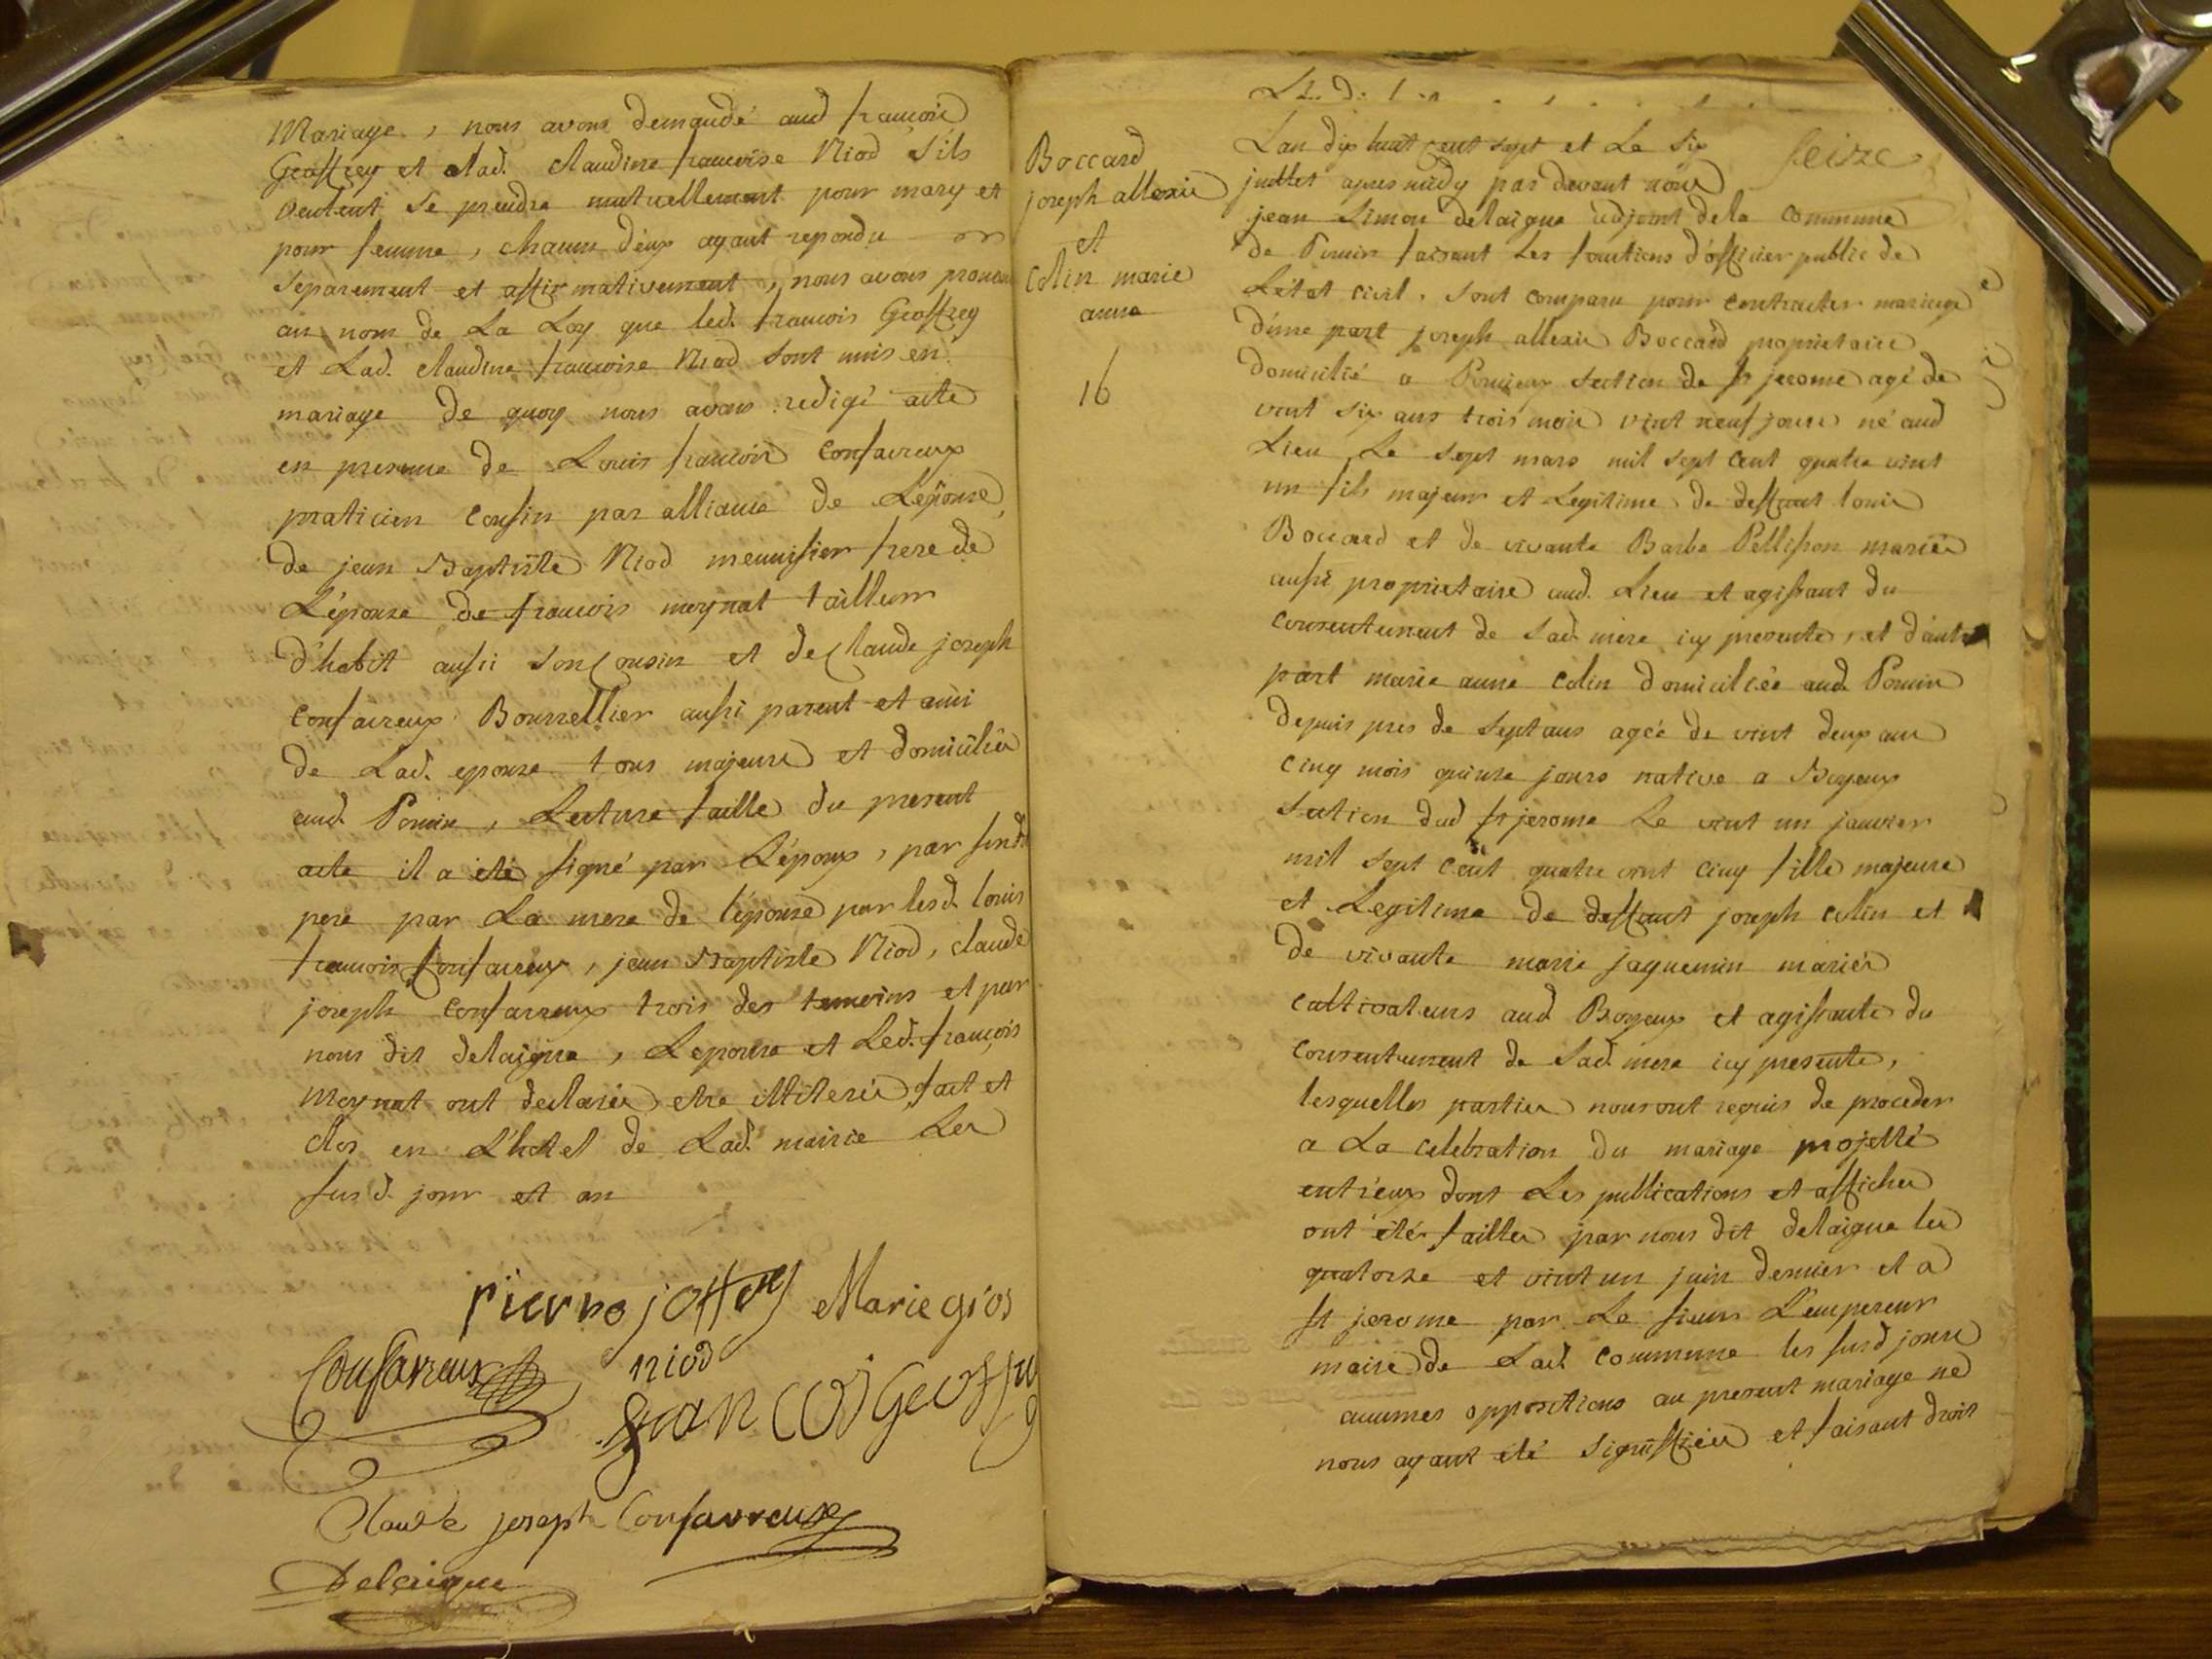 Mariage, nous avons demandé aud francois
Geoffrey et a lad. claudine francoise Niod s'ils
veulent se prendre mutuellement pour mary et
pour femme, chacun d'eux ayant repondu
séparement et affirmativement, nous avons prononcé
au nom de La Loy que led. francois Geoffrey
et Lad. claudine francoise Niod sont unis en
mariage de quoy nous avons redigé acte
en presence de Louis francois Confavreux
praticien cousin par alliance de L'épouse,
de jean Baptiste Niod menuisier frere de
L'épouse de francois moynat tailleur
d'habit aussi son Cousin et de Claude joseph
Confavreux Bourrellier aussi parent et ami
de Lad. epouse tous majeurs et domiciliés
aud. Poncin, Lecture faitte du present
acte il a été signé par L'époux, par sond.
pere par La mere de l'épouse par lesd. louis
francois Confavreux, jean Baptiste Niod, claude
joseph Confavreux trois des temoins et par
nous dit delaigue, L'epouse et Led. françois
Moynat ont declarés etre illiterés fait et
clos en L'hotel de Lad. mairie Les
susd. jour et an
pierre joffrey Marie gros
Confavreux niod
francois Geoffrey
Claude joseph Confavreux
Delaigue
Boccard
joseph allexis
et
Colin marie
anne
16
seize
Lan dix huit cent sept et Le six
juillet apres midy par devant nous
jean Simon delaigue adjoint de la commune
de Poncin faisant Les fonctions d'officier public de
L'état civil. sont comparu pour contracter mariage
d'une part joseph allexis Boccard proprietaire
domicilié a Poncieux section de st jerome agé de
vint six ans trois mois vint neuf jours né aud
Lieu Le sept mars mil sept cent quatre vint
un fils majeur et Legitime de deffunt louis
Boccard et de vivante Barbe Pellisson mariés
aussi proprietaire aud. Lieu et agissant du
consentement de sad. mere icy presente, et d'autre
part marie anne colin domiciliée aud. Poncin
depuis pres de sept ans agée de vint deux ans
cinq mois quinze jours native a Boyeux
section dud st jerome Le vint un janvier
mil sept cent quatre vint cinq fille majeure
et Legitime de deffunt joseph colin et
de vivante marie jaquemin mariés
cultivateurs aud Boyeux et agissante du
consentement de sad. mere icy presente,
lesquelles parties nous ont requis de proceder
a La celebration du mariage projetté
entr'eux dont Les publications et affiches
ont été faittes par nous dit delaigue les
quatorze et vint un juin dernier et a
st jerome par Le sieur L'empereur
maire de Lad. commune les susd jours
aucunes oppositions au present mariage ne
nous ayant été signiffiées et faisant droit